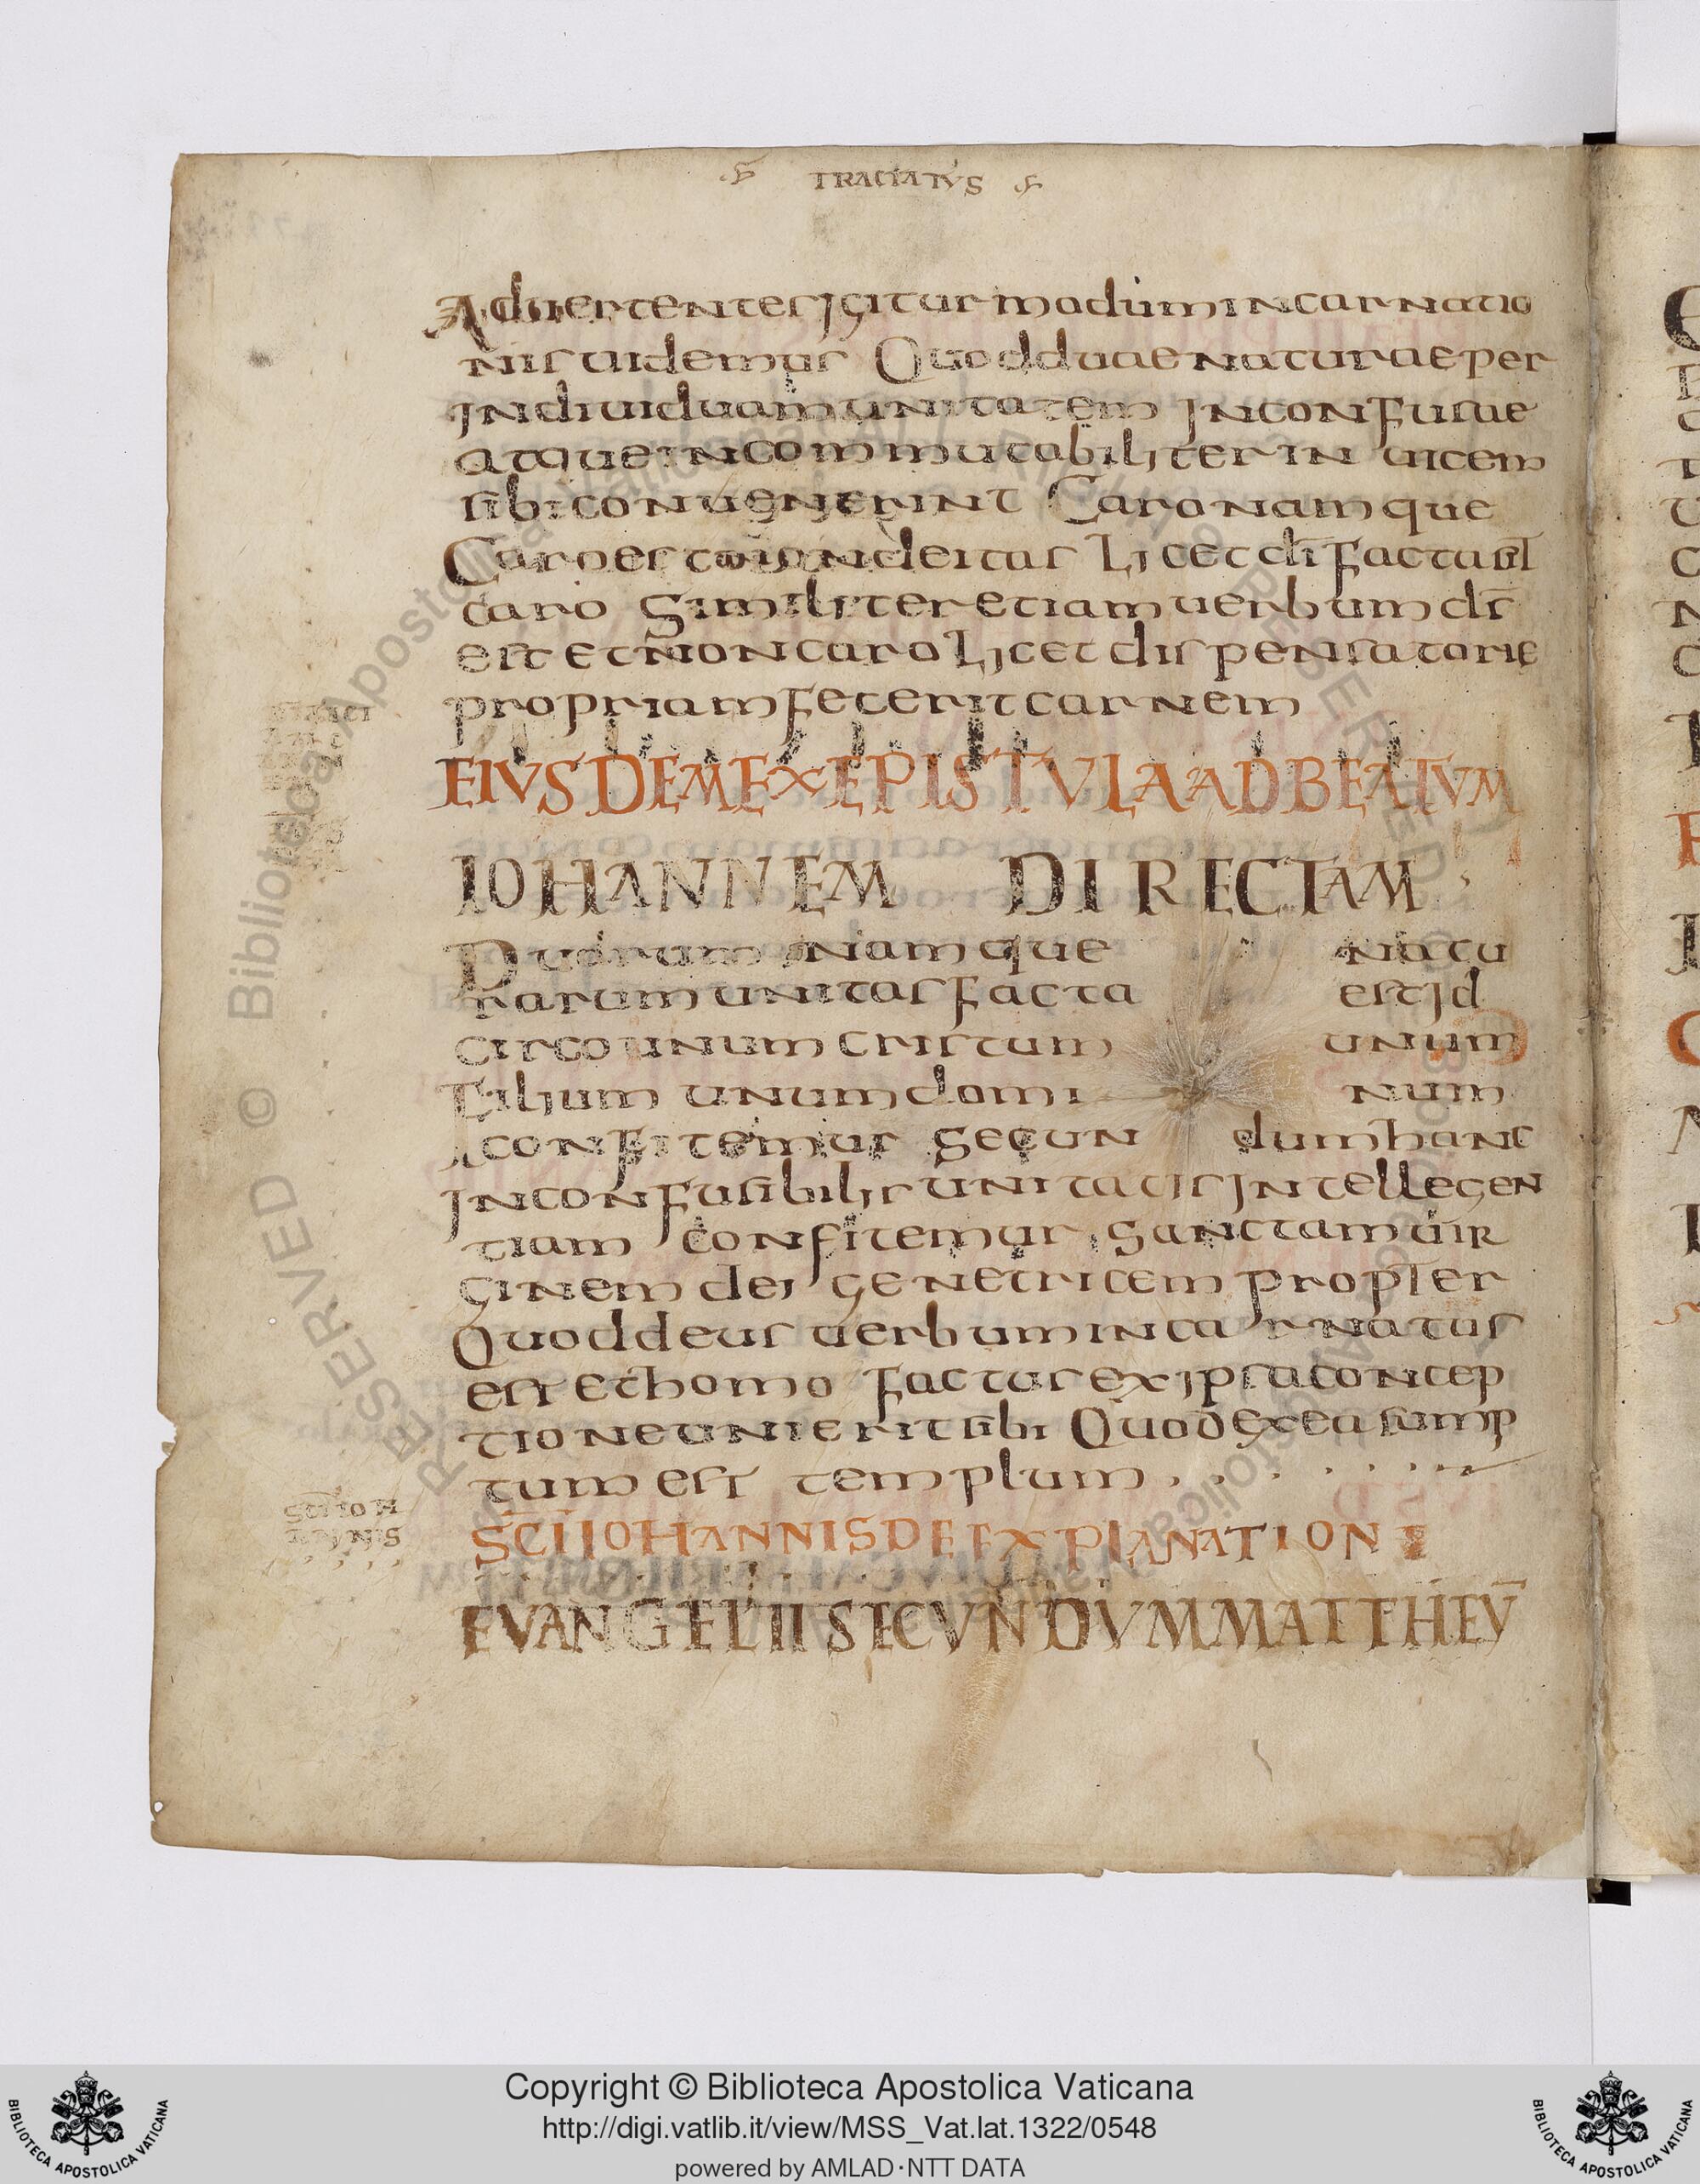 TRACTATVS
Aduertentes igitur modum incarnatio
nis uidemus Quod duae naturae per
indiuiduam unitatem inconfusae
atque incommutabiliter in uicem
sibi conuenerint Caro namque
Caro est non deitas Licet di facta sit
caro Similiter etiam uerbum di
est et non caro Licet dispensatorie
propriam fecerit carnem
EIVSDEM EX EPISTVLA AD BEATVM
IOHANNEM DIRECTAM
Duorum namque natu
rarum unitas facta est id
circo unum cristum unum
Filium unum domi num
confitemur Secun dum hanc
inconfusibilis unitatis intellegen
tiam confitemur sanctam uir
ginem dei genetricem propter
Quod deus uerbum incarnatus
est et homo factus ex ipsa concep
tione unierit sibi Quod ex ea sump
tum est templum
SC̄I IOHANNIS DE EXPLANATIONE
EVANGELII SECVNDVM MATTHEV̄
SC̄I IOH
ANNIS
RESERVED © Biblioteca Apostolica Vaticana
Copyright © Biblioteca Apostolica Vaticana
http://digi.vatlib.it/view/MSS_Vat.lat.1322/0548
powered by AMLAD·NTT DATA
BIBLIOTECA APOSTOLICA VATICANA
BIBLIOTECA APOSTOLICA VATICANA